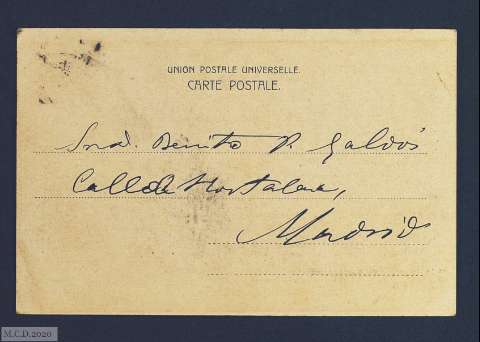 UNION POSTALE UNIVERSELLE.
CARTE POSTALE.
Snr. Benito P. Galdós
Calle de Hortaleza,
Madrid
M.C.D.2020